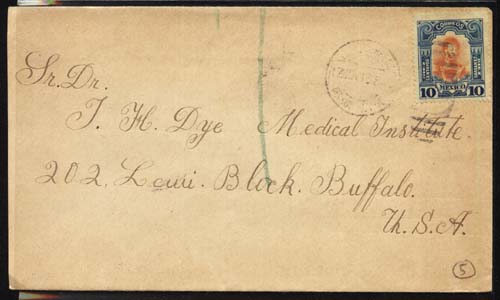 CORREOS
MEXICO
10 10
Sr. Dr.
J. H. Dye Medical Institute.
202. Lewi. Block. Buffalo.
U. S. A.
5